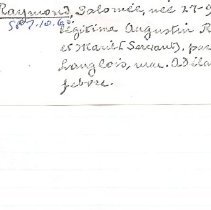 Raymond, Salomée, née 27-9
S. 27.10.60.
légitime Augustin R
et Marie (Servant), par
Langlois, mar. Adéla
febvre.